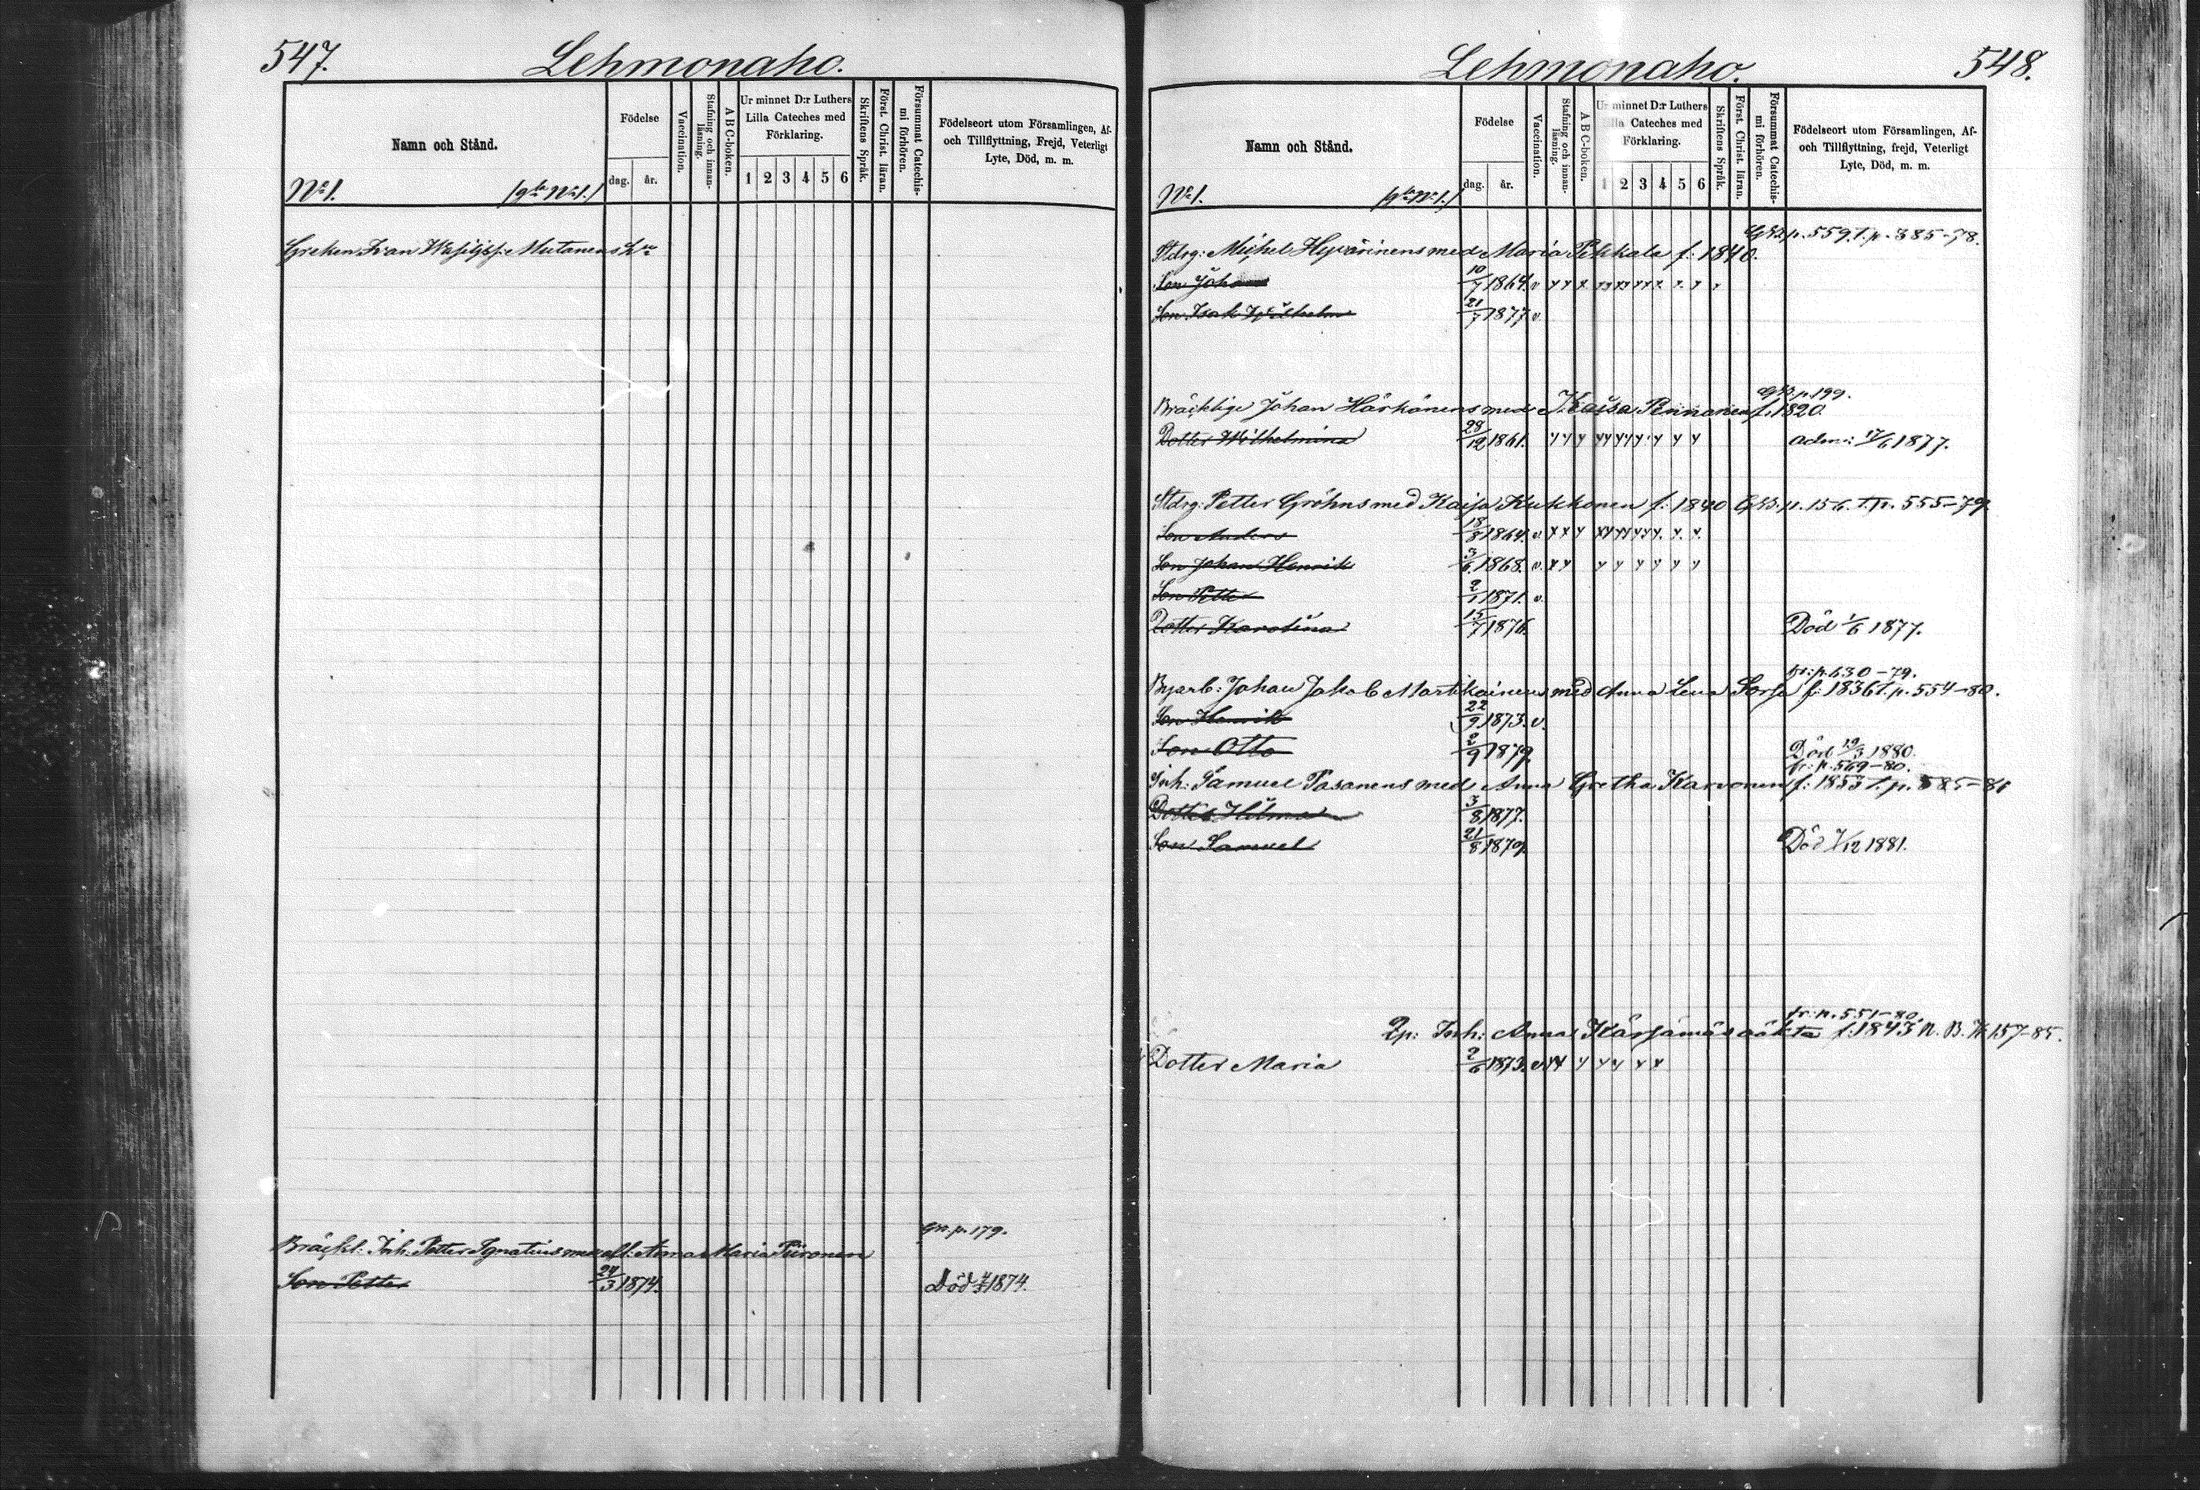 547. Lehmonaho.
Namn och Stånd.
Födelse
dag. år.
Vaccination.
Stafning och innanläsning.
A B C-boken.
Ur minnet D:r Luthers Lilla Cateches med Förklaring.
1 2 3 4 5 6
Skriftens Språk.
Först. Christ. läran.
Försummat Catechismi förhören.
Födelseort utom Församlingen, Af- och Tillflyttning, Frejd, Veterligt Lyte, Död, m. m.
No 1.
Greken Ivan Mutanens
Gb. p. 179.
Bräckl: Inh: Petter Ignatius med fl: Anna Maria Piironen
Son Petter 24/3 1874. Död 1874.
Lehmonaho. 548.
Namn och Stånd.
Födelse
dag. år.
Vaccination.
Stafning och innanläsning.
A B C-boken.
Ur minnet D:r Luthers Lilla Cateches med Förklaring.
1 2 3 4 5 6
Skriftens Språk.
Först. Christ. läran.
Försummat Catechismi förhören.
Födelseort utom Församlingen, Af- och Tillflyttning, frejd, Veterligt Lyte, Död, m. m.
No 1.
p. 559. t. p. 385-78.
Stdrg: Michel Hyvärinens med Maria Pekkala f: 1840.
Son Johan 10/7 1864. v
Son Isak Wilhelm 21/7 1877 v.
p. 199.
Bräcklige Johan Härkönens med Kaisa Pennanen f. 1820.
Dotter Wilhelmina 28/12 1861. adm: 17/6 1877.
Stdrg: Petter Gröhns med Kaisa Kukkonen f: 1840 p. 156. t. p. 555-79.
Son Anders 18/8 1864. v.
Son Johan Henrik 3/6 1868. v.
Son Petter 2/1 1871. v.
Dotter Karolina 15/7 1876. Död 1/6 1877.
fr: p. 630-79.
Byarb: Johan Jakob Martikainens med Anna Lena Sorsa f: 1836 t. p. 554-80.
Son Henrik 22/9 1873. v.
Son Otto 2/9 1879. Död 19/3 1880.
fr: p. 569-80.
Inh: Samuel Pasanens med Anna Gretha Karvonen f: 1853 t. p. 585-86
Dotter Hilma 3/8 1877.
Son Samuel 21/8 1879. Död 7/12 1881.
fr: p. 551-80.
Inh: Anna Kärjämäs oäkta f. 1843 N. B. 157-85.
Dotter Maria 2/6 1873. v